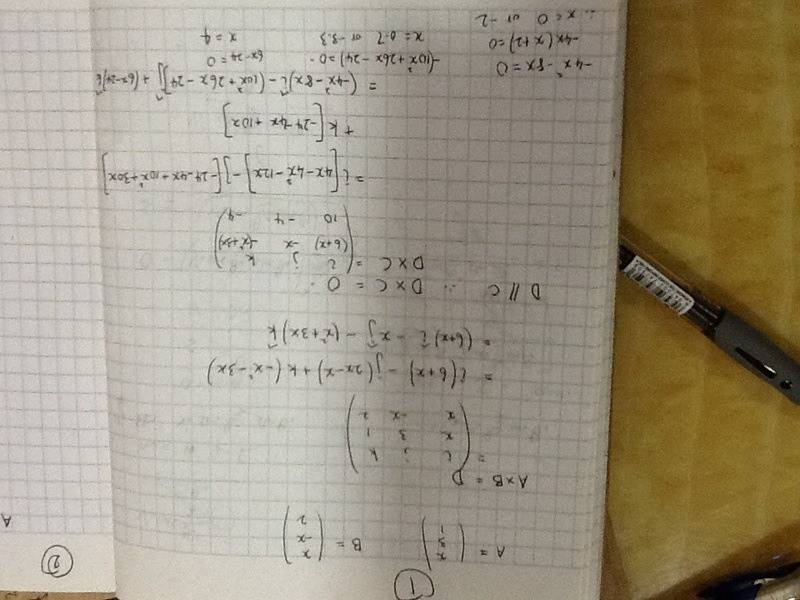 ①
A = (x 3 1) B = (x -x 2)
A×B = D
= (i j k
x 3 1
x -x 2)
= i(6+x) - j(2x-x) + k(-x²-3x)
= (6+x)î - xĵ - (x²+3x)k̂
D // C ∴ D×C = 0
D×C = (i j k
(6+x) -x -(x²+3x)
10 -4 -4)
= i[4x-4x²-12x] - j[-24-4x+10x²+30x]
+ k[-24-4x+10x]
= (-4x²-8x)î - (10x²+26x-24)ĵ + (6x-24)k̂
-4x²-8x=0 -(10x²+26x-24)=0 6x-24=0
-4x(x+2)=0 x=0.7 or -3.3 x=4
∴ x=0 or -2
②
A